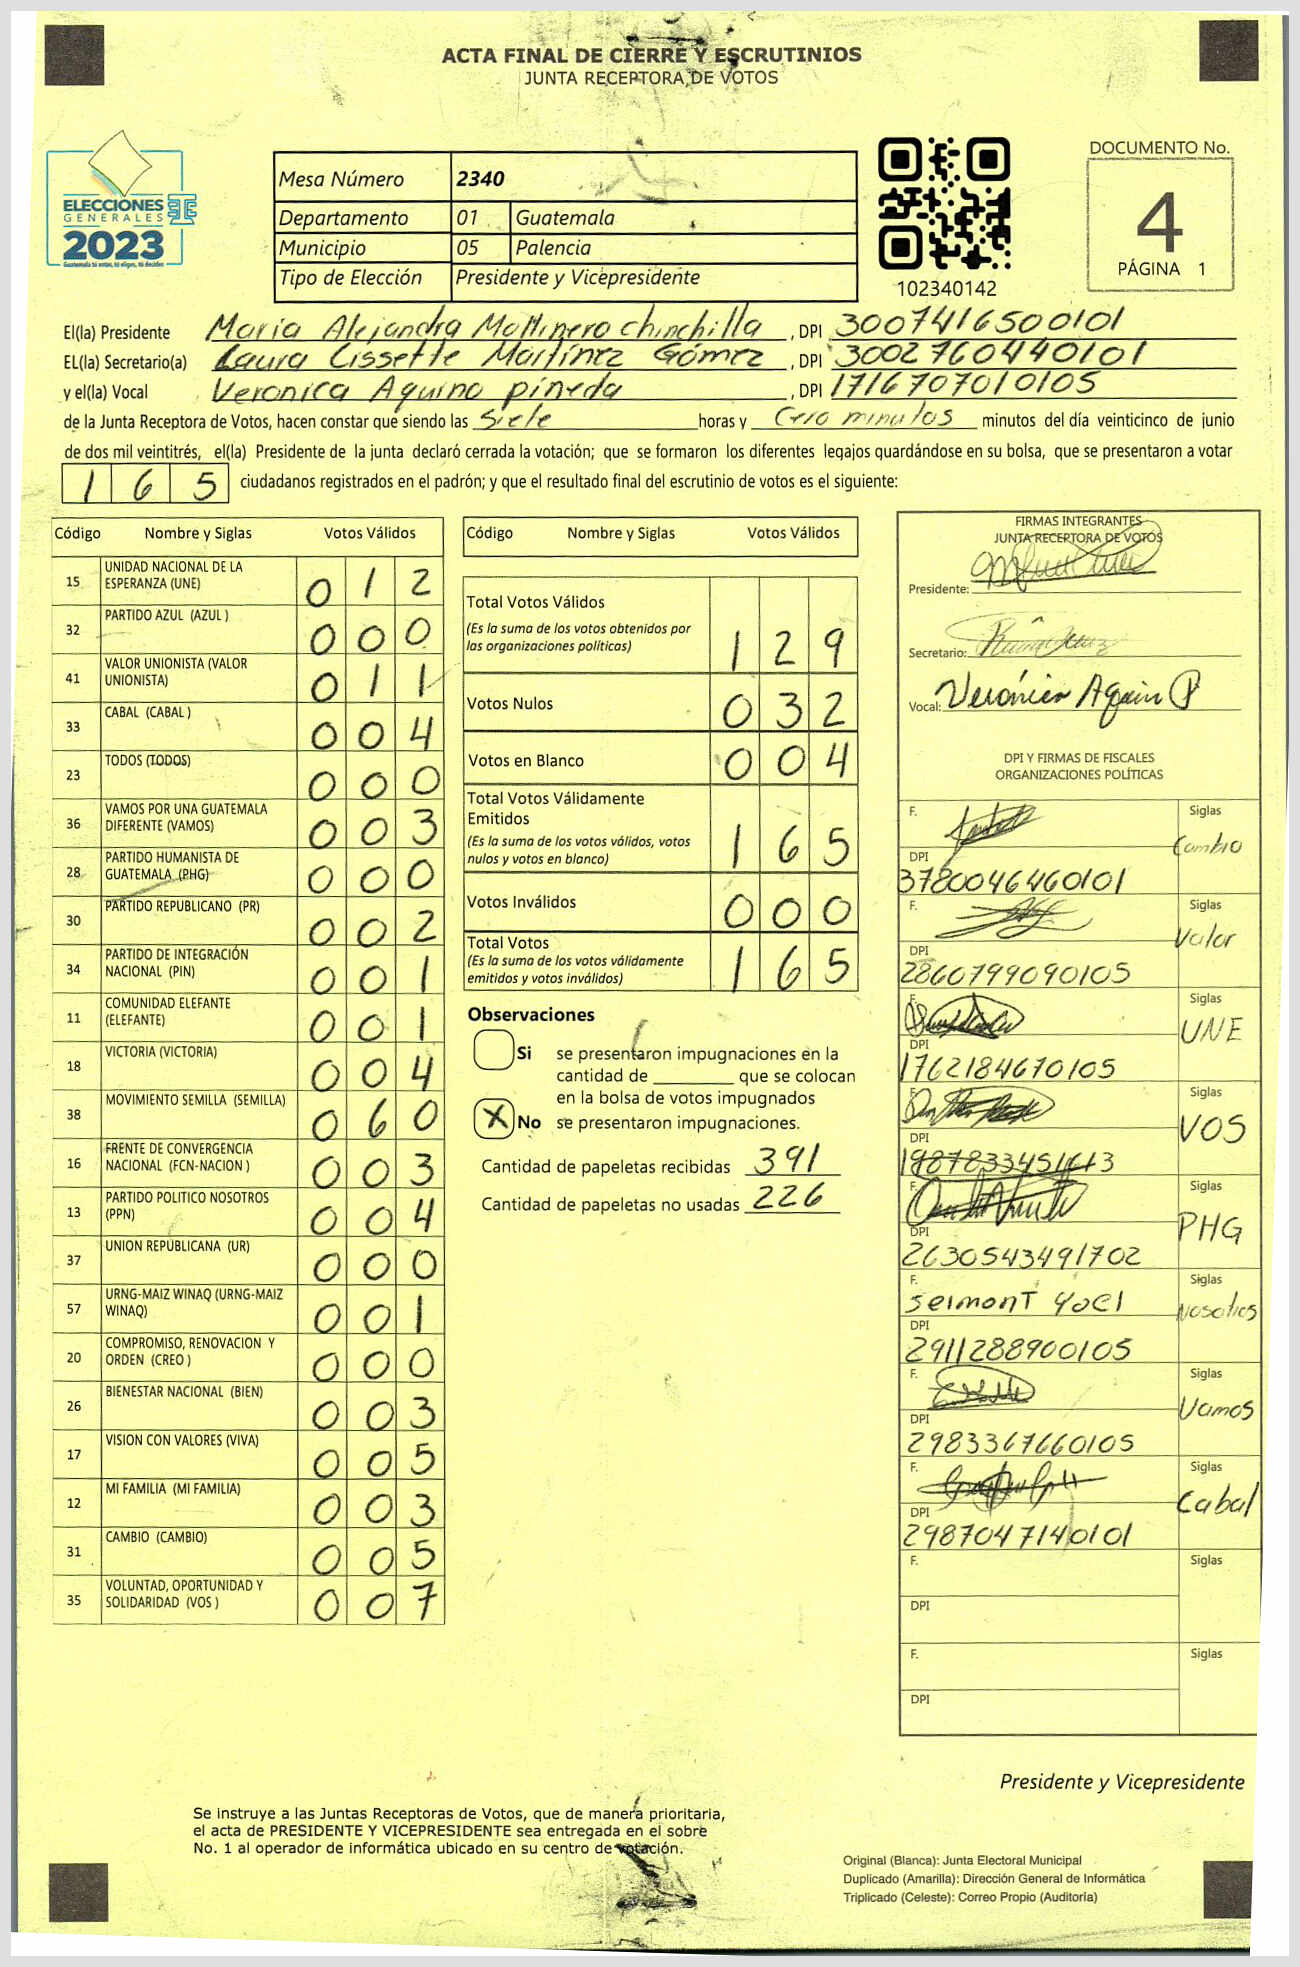 ACTA FINAL DE CIERRE Y ESCRUTINIOS
JUNTA RECEPTORA DE VOTOS
ELECCIONES
GENERALES
2023
Guatemala tú votas, tú eliges, tú decides
Mesa Número 2340
Departamento 01 Guatemala
Municipio 05 Palencia
Tipo de Elección Presidente y Vicepresidente
102340142
DOCUMENTO No.
4
PÁGINA 1
El(la) Presidente Maria Alejandra Mollinero Chinchilla, DPI 3007416500101
EL(la) Secretario(a) Laura Lissette Martínez Gómez, DPI 3002760440101
y el(la) Vocal Veronica Aquino pineda, DPI 1716707010105
de la Junta Receptora de Votos, hacen constar que siendo las Siete horas y Cero minutos minutos del día veinticinco de junio
de dos mil veintitrés, el(la) Presidente de la junta declaró cerrada la votación; que se formaron los diferentes legajos quardándose en su bolsa, que se presentaron a votar
165 ciudadanos registrados en el padrón; y que el resultado final del escrutinio de votos es el siguiente:
Código Nombre y Siglas Votos Válidos
15 UNIDAD NACIONAL DE LA ESPERANZA (UNE) 012
32 PARTIDO AZUL (AZUL ) 000
41 VALOR UNIONISTA (VALOR UNIONISTA) 011
33 CABAL (CABAL ) 004
23 TODOS (TODOS) 000
36 VAMOS POR UNA GUATEMALA DIFERENTE (VAMOS) 003
28 PARTIDO HUMANISTA DE GUATEMALA (PHG) 000
30 PARTIDO REPUBLICANO (PR) 002
34 PARTIDO DE INTEGRACIÓN NACIONAL (PIN) 001
11 COMUNIDAD ELEFANTE (ELEFANTE) 001
18 VICTORIA (VICTORIA) 004
38 MOVIMIENTO SEMILLA (SEMILLA) 060
16 FRENTE DE CONVERGENCIA NACIONAL (FCN-NACION ) 003
13 PARTIDO POLITICO NOSOTROS (PPN) 004
37 UNION REPUBLICANA (UR) 000
57 URNG-MAIZ WINAQ (URNG-MAIZ WINAQ) 001
20 COMPROMISO, RENOVACION Y ORDEN (CREO ) 000
26 BIENESTAR NACIONAL (BIEN) 003
17 VISION CON VALORES (VIVA) 005
12 MI FAMILIA (MI FAMILIA) 003
31 CAMBIO (CAMBIO) 005
35 VOLUNTAD, OPORTUNIDAD Y SOLIDARIDAD (VOS ) 007
Código Nombre y Siglas Votos Válidos
Total Votos Válidos
(Es la suma de los votos obtenidos por
las organizaciones políticas) 129
Votos Nulos 032
Votos en Blanco 004
Total Votos Válidamente
Emitidos
(Es la suma de los votos válidos, votos
nulos y votos en blanco) 165
Votos Inválidos 000
Total Votos
(Es la suma de los votos válidamente
emitidos y votos inválidos) 165
Observaciones
Si se presentaron impugnaciones en la
cantidad de ________ que se colocan
en la bolsa de votos impugnados
X No se presentaron impugnaciones.
Cantidad de papeletas recibidas 391
Cantidad de papeletas no usadas 226
FIRMAS INTEGRANTES
JUNTA RECEPTORA DE VOTOS
Presidente:
Secretario:
Vocal: Verónica Aquin P
DPI Y FIRMAS DE FISCALES
ORGANIZACIONES POLÍTICAS
F. Siglas Cambio
DPI 3780046460101
F. Siglas Valor
DPI 2860799090105
F. Siglas UNE
DPI 1762184670105
F. Siglas VOS
DPI
F. Siglas PHG
DPI 2630543491702
F. Selmont Yoel Siglas Nosotros
DPI 2911288900105
F. Siglas Vamos
DPI 2983367660105
F. Siglas Cabal
DPI 2987047140101
F. Siglas
DPI
F. Siglas
DPI
Presidente y Vicepresidente
Se instruye a las Juntas Receptoras de Votos, que de manera prioritaria,
el acta de PRESIDENTE Y VICEPRESIDENTE sea entregada en el sobre
No. 1 al operador de informática ubicado en su centro de votación.
Original (Blanca): Junta Electoral Municipal
Duplicado (Amarilla): Dirección General de Informática
Triplicado (Celeste): Correo Propio (Auditoría)